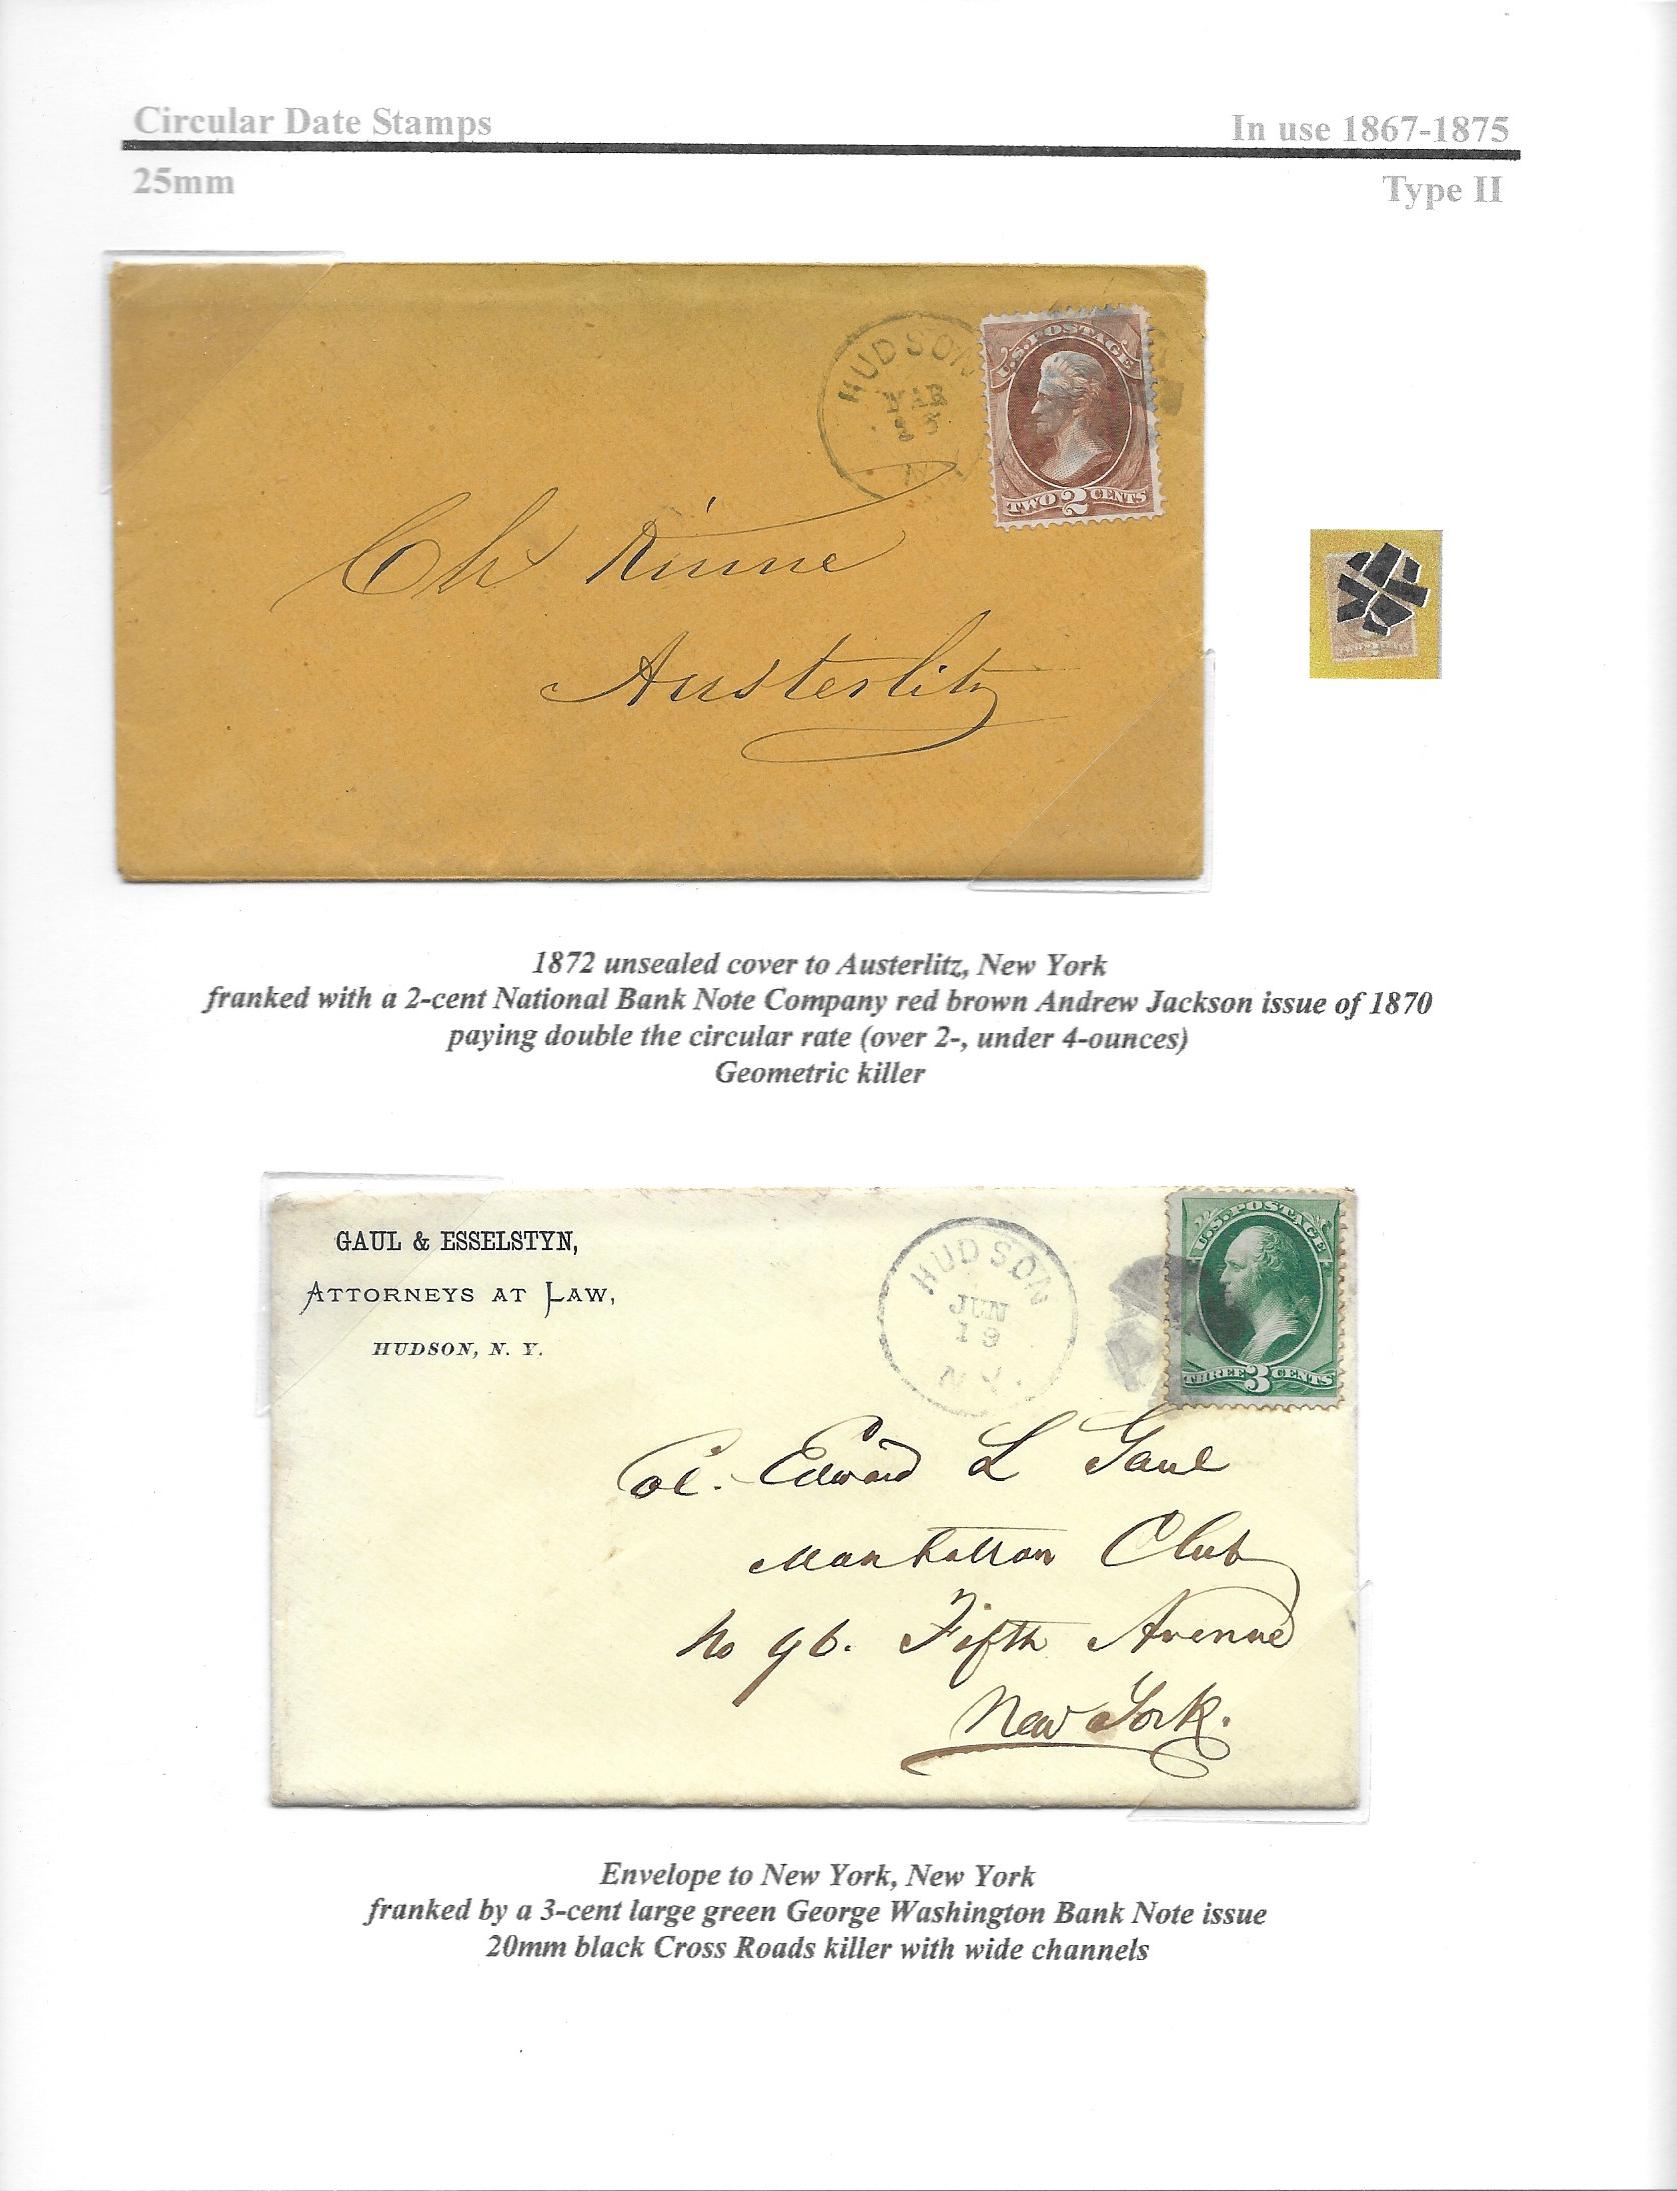 Circular Date Stamps
In use 1867-1875
25mm
Type II
HUDSON
MAR
N
U.S. POSTAGE
TWO 2 CENTS
Ch Kinne
Austerlitz
1872 unsealed cover to Austerlitz, New York
franked with a 2-cent National Bank Note Company red brown Andrew Jackson issue of 1870
paying double the circular rate (over 2-, under 4-ounces)
Geometric killer
GAUL & ESSELSTYN,
ATTORNEYS AT LAW,
HUDSON, N. Y.
HUDSON
JUN
19
N.Y.
U.S. POSTAGE
THREE 3 CENTS
Col. Edward L Gaul
Manhattan Club
No 96. Fifth Avenue
New York.
Envelope to New York, New York
franked by a 3-cent large green George Washington Bank Note issue
20mm black Cross Roads killer with wide channels